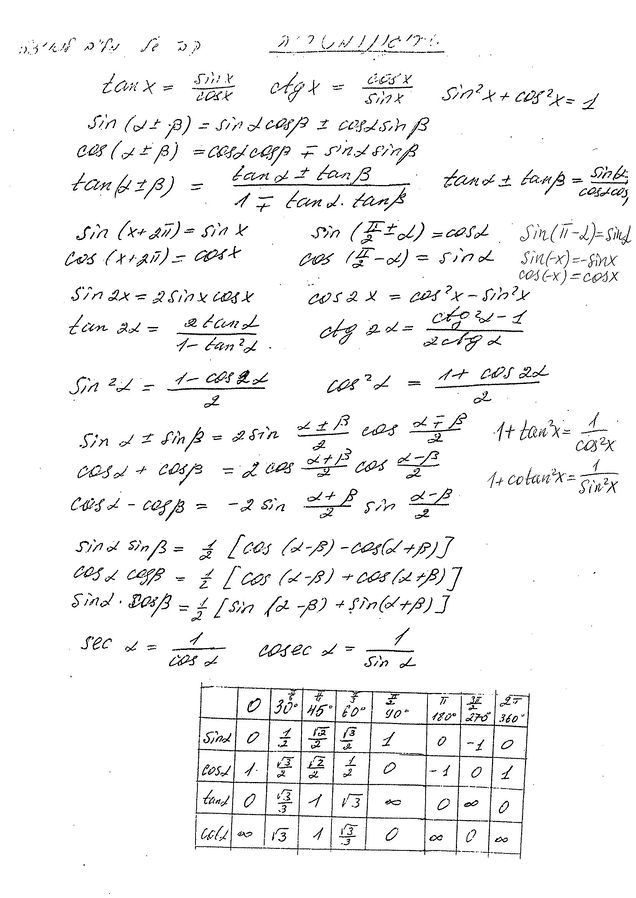 טריגונומטריה
tan x = sin x / cos x   ctg x = cos x / sin x   sin²x + cos²x = 1
sin (α ± β) = sin α cos β ± cos α sin β
cos (α ± β) = cos α cos β ∓ sin α sin β
tan (α ± β) = (tan α ± tan β) / (1 ∓ tan α · tan β)   tan α ± tan β =
sin (x + 2π) = sin x   sin (π/2 ± α) = cos α   sin (π - α) = sin α
cos (x + 2π) = cos x   cos (π/2 - α) = sin α   sin(-x) = -sin x
cos(-x) = cos x
sin 2x = 2 sin x cos x   cos 2x = cos²x - sin²x
tan 2α = 2 tan α / (1 - tan²α)   ctg 2α = (ctg²α - 1) / (2 ctg α)
sin²α = (1 - cos 2α) / 2   cos²α = (1 + cos 2α) / 2
sin α ± sin β = 2 sin (α ± β)/2 cos (α ∓ β)/2   1 + tan²x = 1 / cos²x
cos α + cos β = 2 cos (α + β)/2 cos (α - β)/2   1 + cotan²x = 1 / sin²x
cos α - cos β = -2 sin (α + β)/2 sin (α - β)/2
sin α sin β = 1/2 [cos (α - β) - cos(α + β)]
cos α cos β = 1/2 [cos (α - β) + cos (α + β)]
sin α · cos β = 1/2 [sin (α - β) + sin(α + β)]
sec α = 1 / cos α   cosec α = 1 / sin α
0   π/6 30°   π/4 45°   π/3 60°   π/2 90°   π 180°   3π/2 270°   2π 360°
sin α   0   1/2   √2/2   √3/2   1   0   -1   0
cos α   1   √3/2   √2/2   1/2   0   -1   0   1
tan α   0   √3/3   1   √3   ∞   0   ∞   0
cot α   ∞   √3   1   √3/3   0   ∞   0   ∞